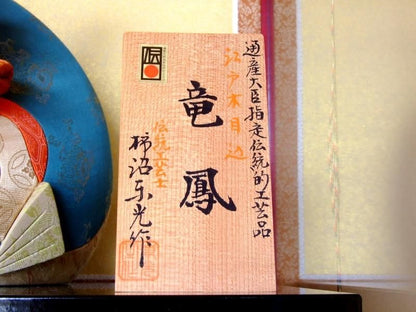 通産大臣指定伝統的工芸品
江戸木目込
竜鳳
伝統工芸士
柿沼東光作
伝